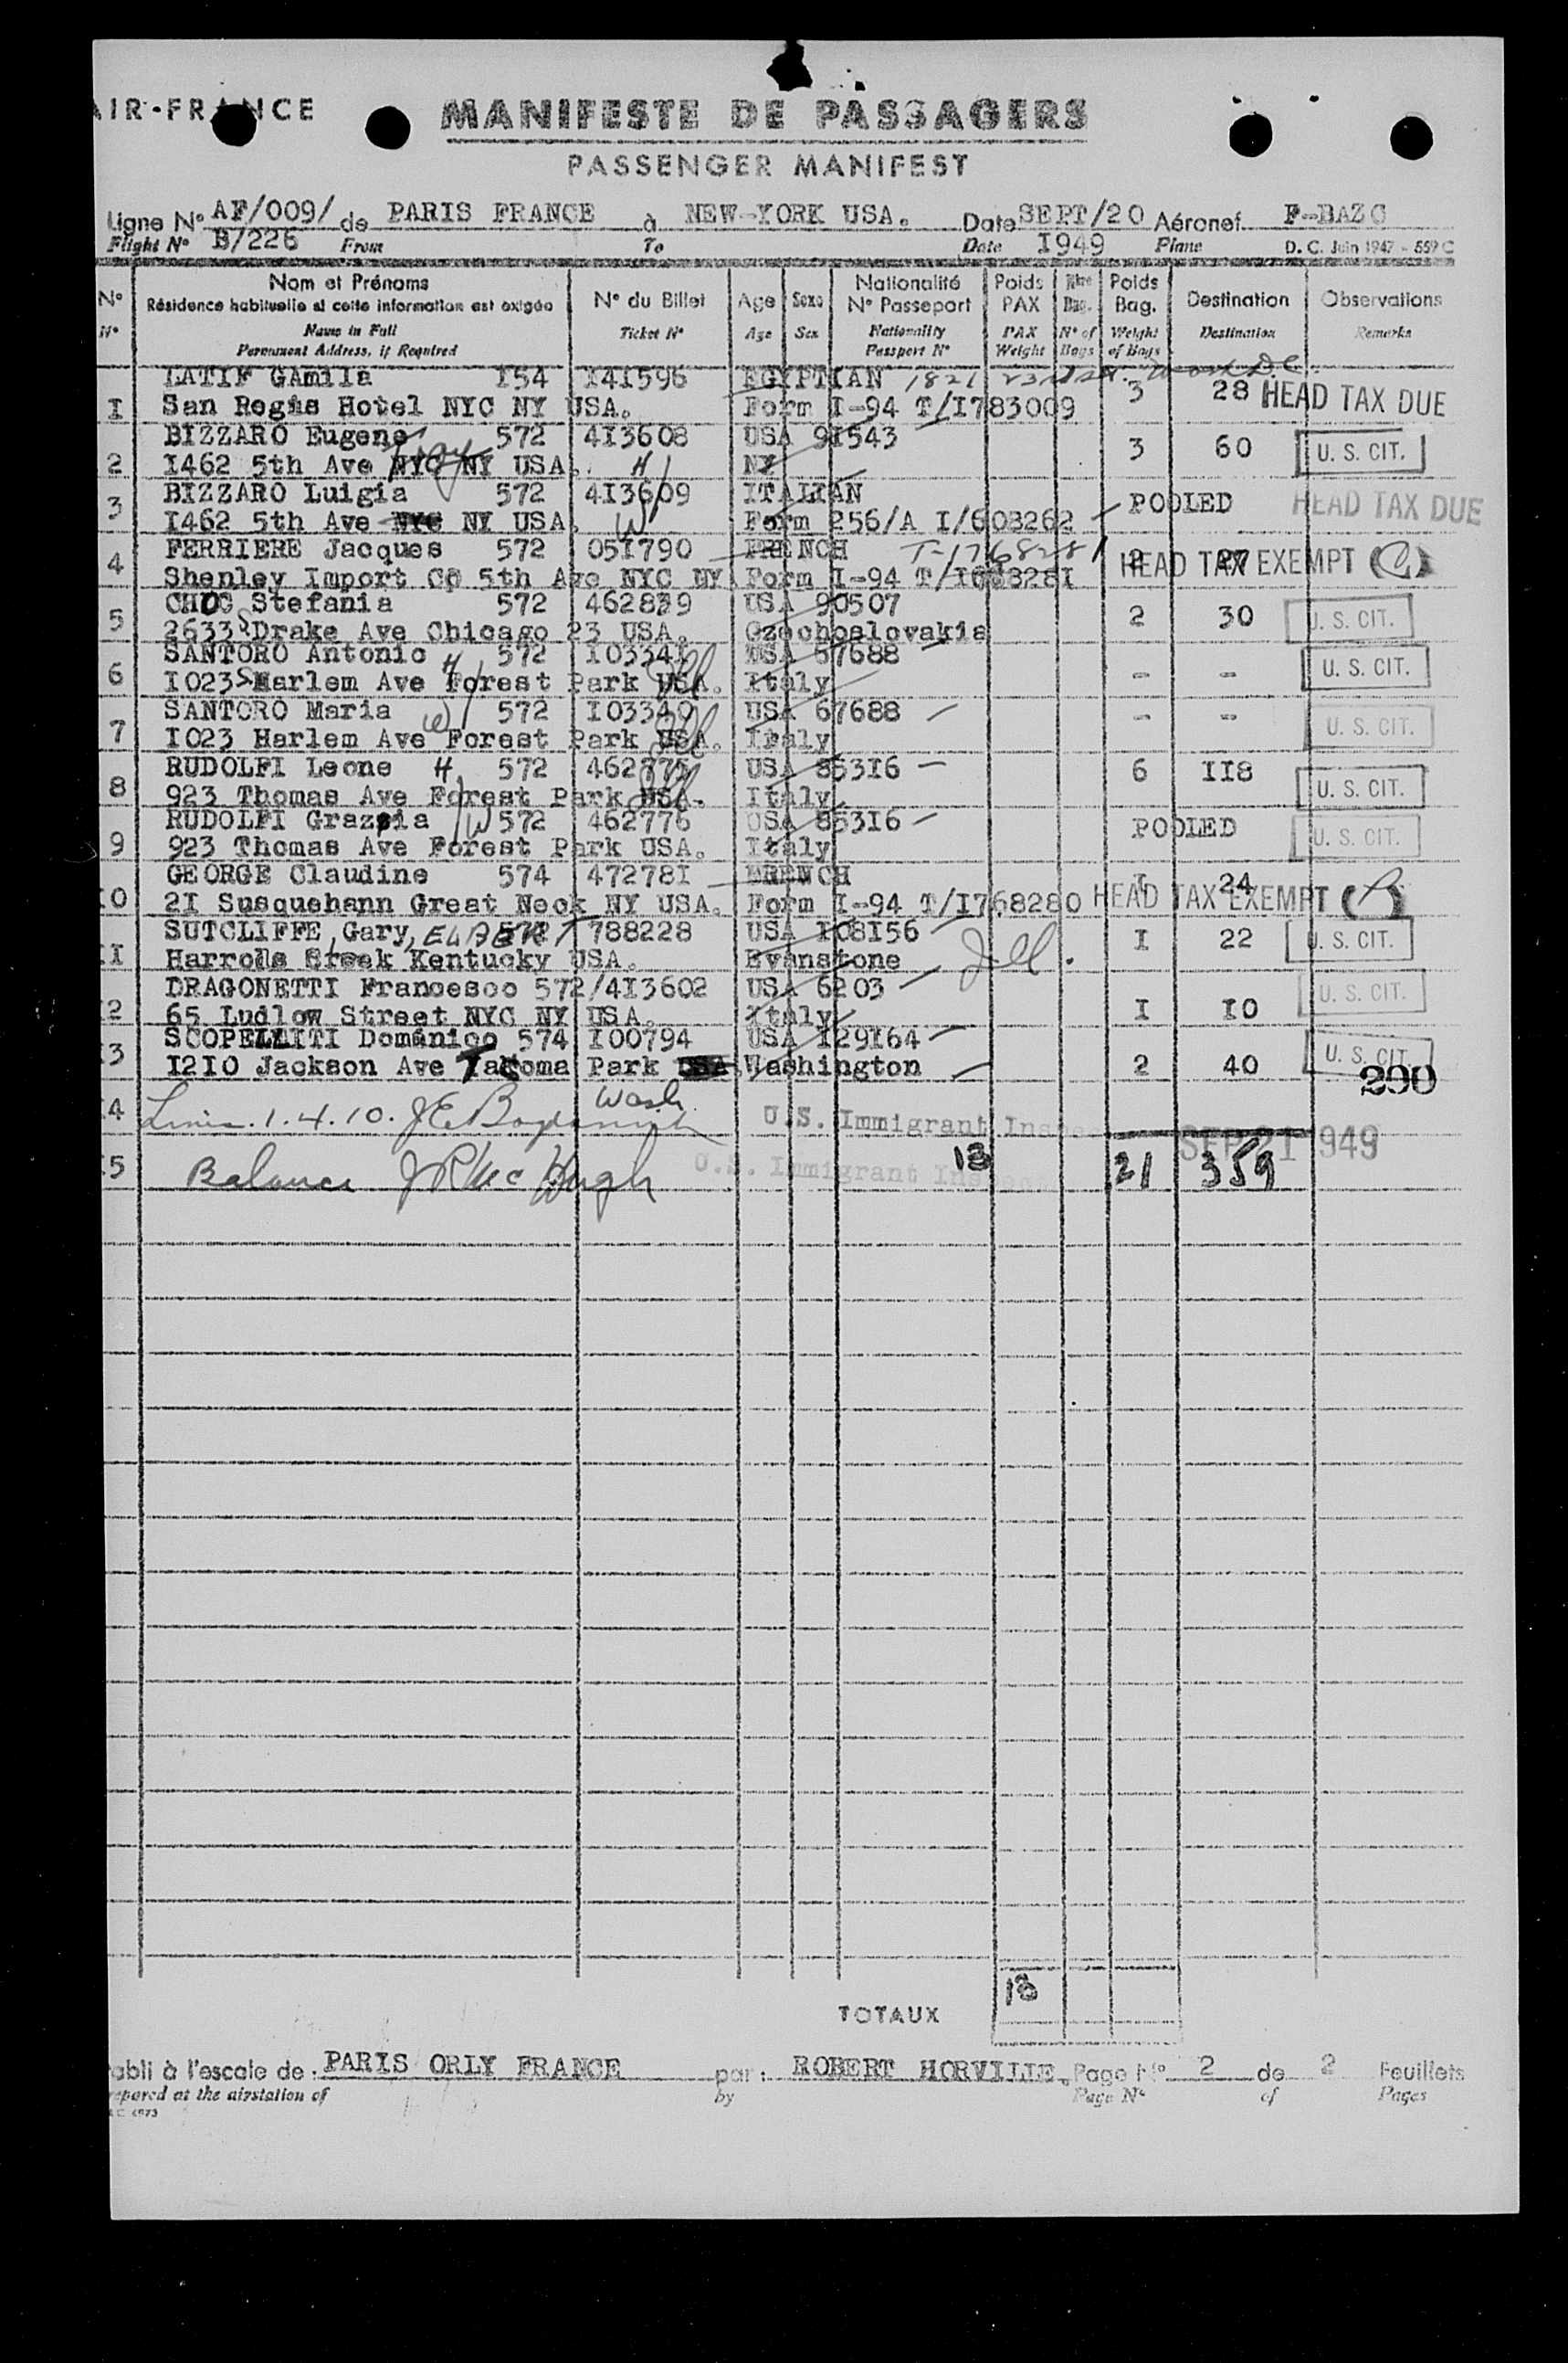 AIR-FRANCE
MANIFESTE DE PASSAGERS
PASSENGER MANIFEST
Ligne N° AF/009/ de PARIS FRANCE à NEW-YORK USA. Date SEPT/20 Aéronef F-BAZC
Flight N° B/226 From To Date I949 Plane D. C. Juin 1947 - 559 C
N° Nom et Prénoms Résidence habituelle si cette information est exigée N° du Billet Age Sexe Nationalité N° Passeport Poids PAX Nbre Bag. Poids Bag. Destination Observations
N° Name in Full Permanent Address, if Required Ticket N° Age Sex Nationality Passport N° PAX Weight N° of Bags Weight of Bags Destination Remarks
LATIF GAmila I54 I4I596 EGYPTIAN 1821
I San Regis Hotel NYC NY USA. Form I-94 T/I783009 3 28 HEAD TAX DUE
BIZZARO Eugene 572 4I3608 USA 9I543
2 I462 5th Ave NYC NY USA. H NY 3 60 U. S. CIT.
BIZZARO Luigia 572 4I3609 ITALIAN
3 I462 5th Ave NYC NY USA. W Form 256/A I/608262 POOLED HEAD TAX DUE
FERRIERE Jacques 572 05I790 FRENCH T-1768281
4 Shenley Import Co 5th Ave NYC NY Form I-94 T/I68828I 2 27 HEAD TAX EXEMPT
CHOC Stefania 572 462839 USA 90507
5 2633 S Drake Ave Chicago 23 USA. Czechoslovakia 2 30 U. S. CIT.
SANTORO Antonio H 572 I0334I USA 67688
6 I023 S Harlem Ave Forest Park USA. Italy - - U. S. CIT.
SANTORO Maria W 572 I03340 USA 67688
7 I023 Harlem Ave Forest Park USA. Italy - - U. S. CIT.
RUDOLFI Leone H 572 462775 USA 853I6
8 923 Thomas Ave Forest Park USA. Italy 6 II8 U. S. CIT.
RUDOLFI Grazzia W 572 462776 USA 853I6
9 923 Thomas Ave Forest Park USA. Italy POOLED U. S. CIT.
GEORGE Claudine 574 47278I FRENCH
I0 2I Susquehann Great Neck NY USA. Form I-94 T/I768280 I 24 HEAD TAX EXEMPT
SUTCLIFFE, Gary, ELBERT 572 788228 USA I08I56
II Harrods Creek Kentucky USA. Evanstone I 22 U. S. CIT.
DRAGONETTI Francesco 572/4I3602 USA 6203
I2 65 Ludlow Street NYC NY USA. Italy I I0 U. S. CIT.
SCOPELLITI Domanico 574 I00794 USA I29I64
I3 I2I0 Jackson Ave Takoma Park USA Washington 2 40 U. S. CIT.
200
Wash
I4 Lines 1.4.10. U.S. Immigrant Inspec SEP 21 1949
I5 Balance J R Mc Hugh U.S. Immigrant Inspec 13 21 359
13
TOTAUX
Etabli à l'escale de : PARIS ORLY FRANCE par : ROBERT HORVILLE. Page N° 2 de 2 Feuillets
Prepared at the airstation of by Page N° of Pages